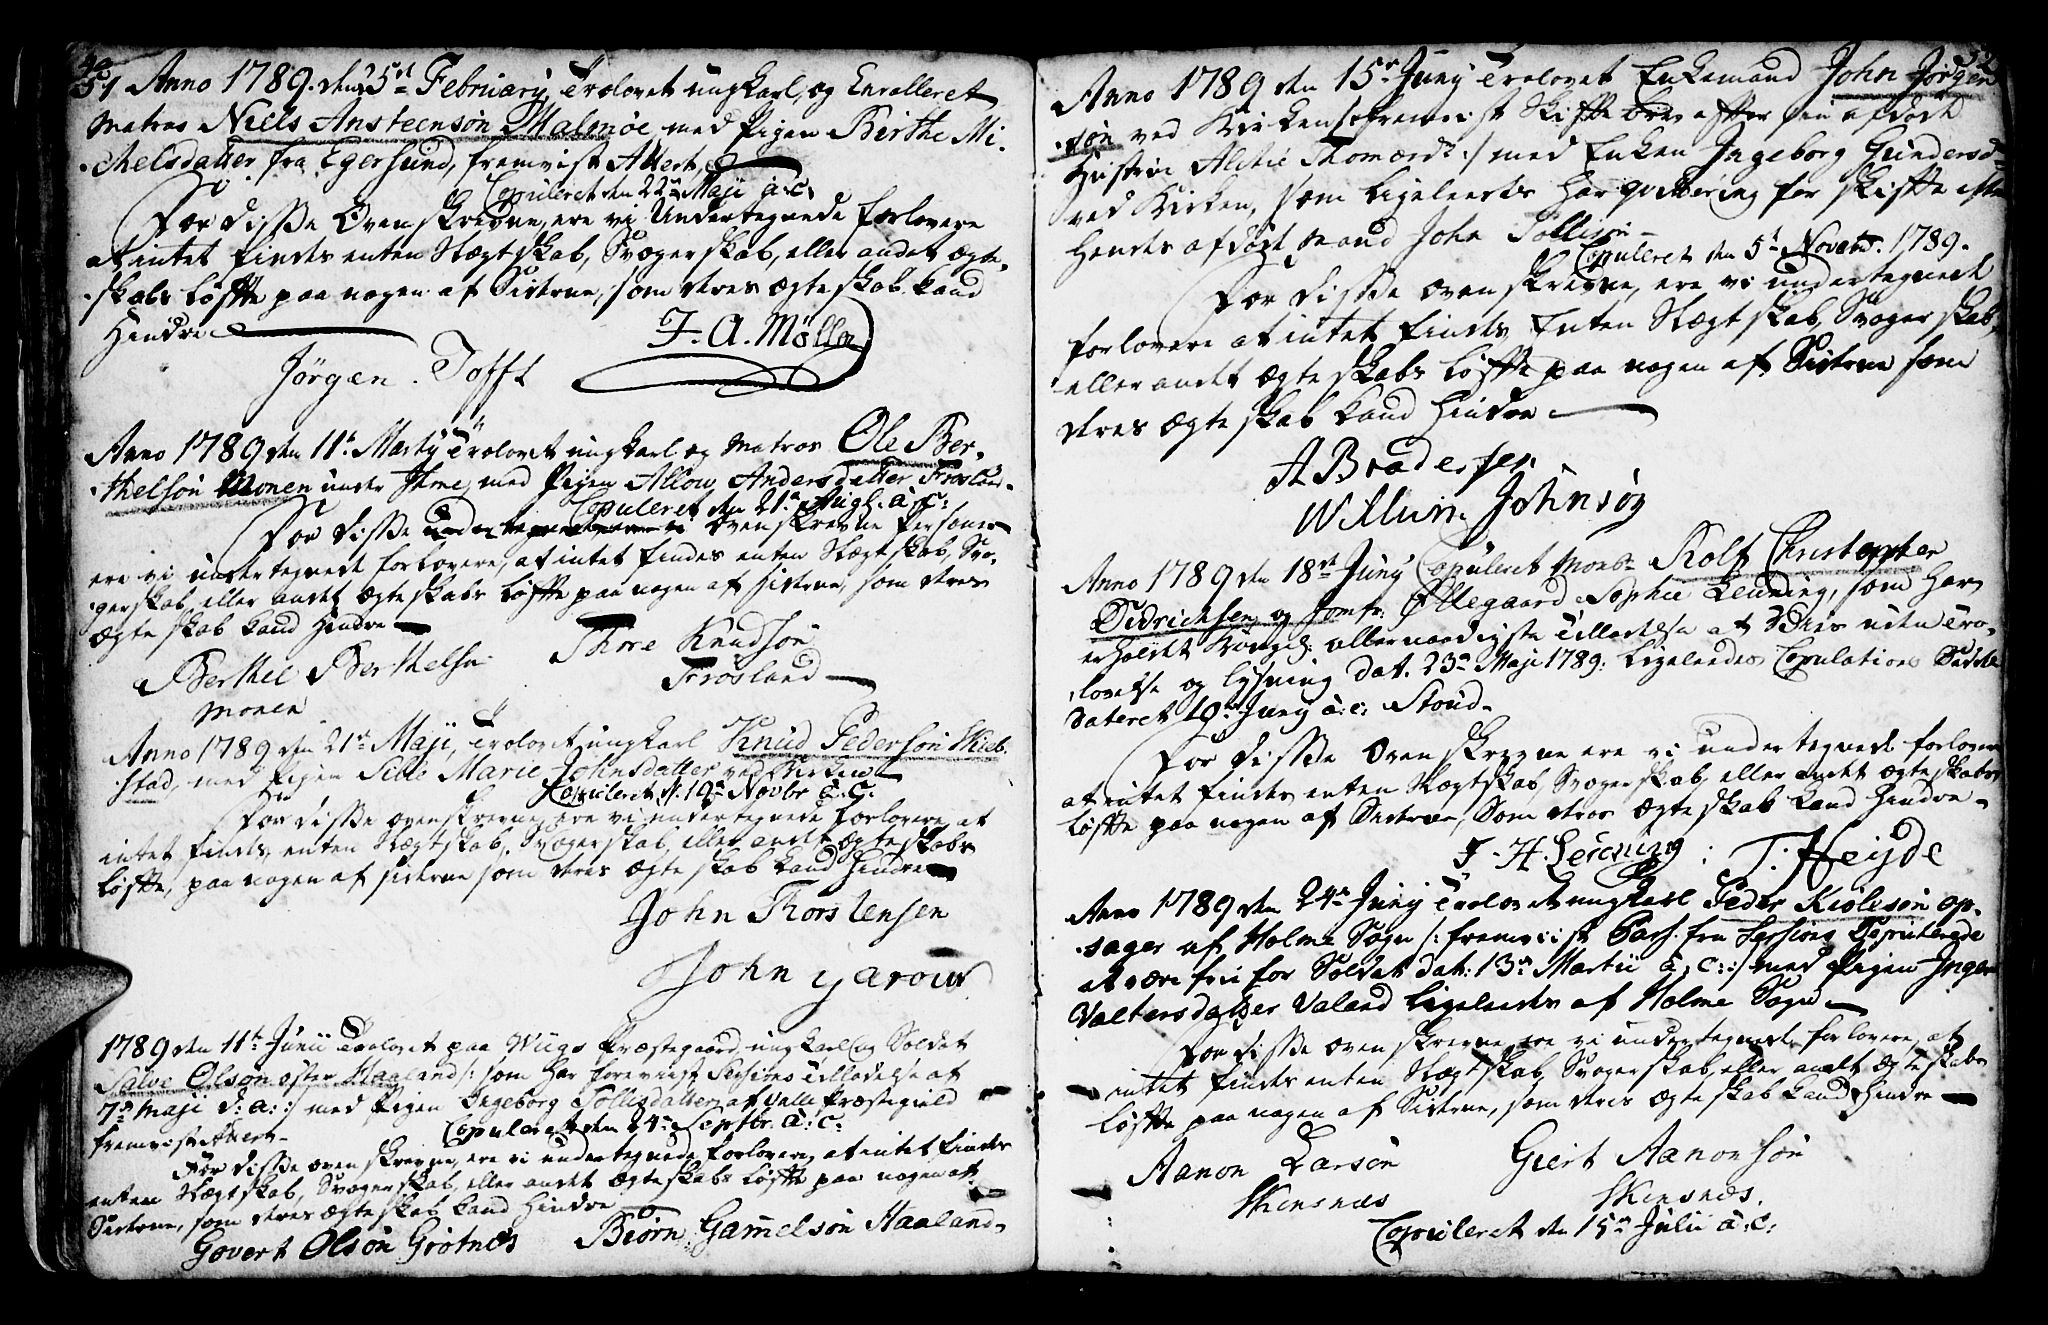 51 Anno 1789. den 25de February Trolovet ungkarl og Enrolleret
Matros Niels Ansteensøn Malmøe, med Pigen Birthe Mi-
-chelsdatter fra Egersund, fremvist Attest
Copuleret den 22de Maji a: c:
For disse Ovenskrevne, ere vi Undertegnede Forlovere
at intet findes enten Slægtskab, Svogerskab, eller andet Ægte-
-skabs Løffte paa nogen af Siderne, som deres Ægteskab kand
Hindre
F. A. Møller
Jørgen Tofft
Anno 1789 den 11te Marty Trolovet ungkarl og Matros Ole Ber-
-thelsøn Monen med Pigen Andersdatter Frøsland
Copuleret den 21de Augt. a: c:
For disse Ovenskrevne Personer
ere vi undertegnede forlovere, at intet findes enten Slægtskab, Svo-
gerskab eller andet Ægteskabs Løffte paa nogen af siderne, som deres
Ægteskab kand Hindre
Berthel Berthelsen Thore Knudsøn
Monen Frøsland
Anno 1789 den 21de Maji, Trolovet ungkarl Knud Pedersøn Skieb-
-stad, med Pigen Sille Marie Johnsdatter ved Kirken
Copuleret d. 19de Novbr a: c:
For disse ovenskrevne, ere vi undertegnede Forlovere, at
intet findes enten Slægtskab, Svogerskab, eller andet Ægteskabs
Løffte, paa nogen af siderne som deres Ægteskab kand Hindre
John Thorstensen
John Jarour
1789 den 11te Junii Trolovet paa Præstegaard, ungkarl og Soldat
Salve Olsøn øster Haaland /: som har foreviist Sessions Tilladelse af
7de Maji d: a: :/ med Pigen Ingeborg Tollisdatter af Valle Præstegield
fremvist Attest
Copuleret den 24de Septbr. a: c:
For disse ovenskrevne, ere vi undertegnede Forlovere, at intet findes
enten Slægtskab, Svogerskab, eller andet Ægteskabs Løffte paa nogen af
Siderne, som deres Ægteskab kand Hindre
Govert Olsøn Grotnes Biørn Gammelsøn Haaland
Anno 1789 den 15de Juny Trolovet Enkemand John Jørgen-
-søn ved Kirken /: fremvist Skiftebrev efter sin afdøde
Hustrue Alchie :/ med Enken Ingeborg Gundersd-
ved Kirken, som ligeleedes har qvittering for skifte efter
Hendes afdøde Mand John Tollisøn
Copuleret den 5te Novemb. 1789.
For disse ovenskrevne, ere vi undertegnede
forlovere at intet findes Enten Slægtskab, Svogerskab,
eller andet Ægteskabs Løffte paa nogen af Siderne som
deres Ægteskab kand Hindre
A Brodersen
Willum Johnsøn
Anno 1789 den 18de Juny Copuleret Monsr. Rolf Christopher
Didrichsen og Jomfr. Øllegaard Sophie Leuning, som har
erholdet Kongel: allernaadigste Tilladelse at Vies uden Tro-
-lovelse og lysning dat. 23de Maji 1789. ligeleedes Copulations Seddel
dateret 10de Juny a: c:
For disse Ovenskrevne ere vi undertegnede forlovere
at intet findes enten Slægtskab, Svogerskab, eller andet Ægteskabs
Løffte paa nogen af Siderne, Som deres Ægteskab kand Hindre
F. H. Leuning : T: Heyde
Anno 1789 den 24de Juny Trolovet ungkarl Peder Kiølesøn op-
-sager af Holme Sogn /: fremviist Pas fra Sessions Deputerede
at være frii for Soldat dat: 13de Martii a: c: :/ med Pigen Inger
Valtersdatter Valand ligeleedes af Holme Sogn
For disse ovenskrevne, ere vi undertegnede forlovere, at
intet findes enten Slægtskab, Svogerskab, eller andet Ægteskabs
Løffte paa nogen af Siderne, som deres Ægteskab kand Hindre
Aanon Larsøn Giert Aanonsøn
Skiensnæs Skiensnæs.
Copuleret den 15de Julii a: c: